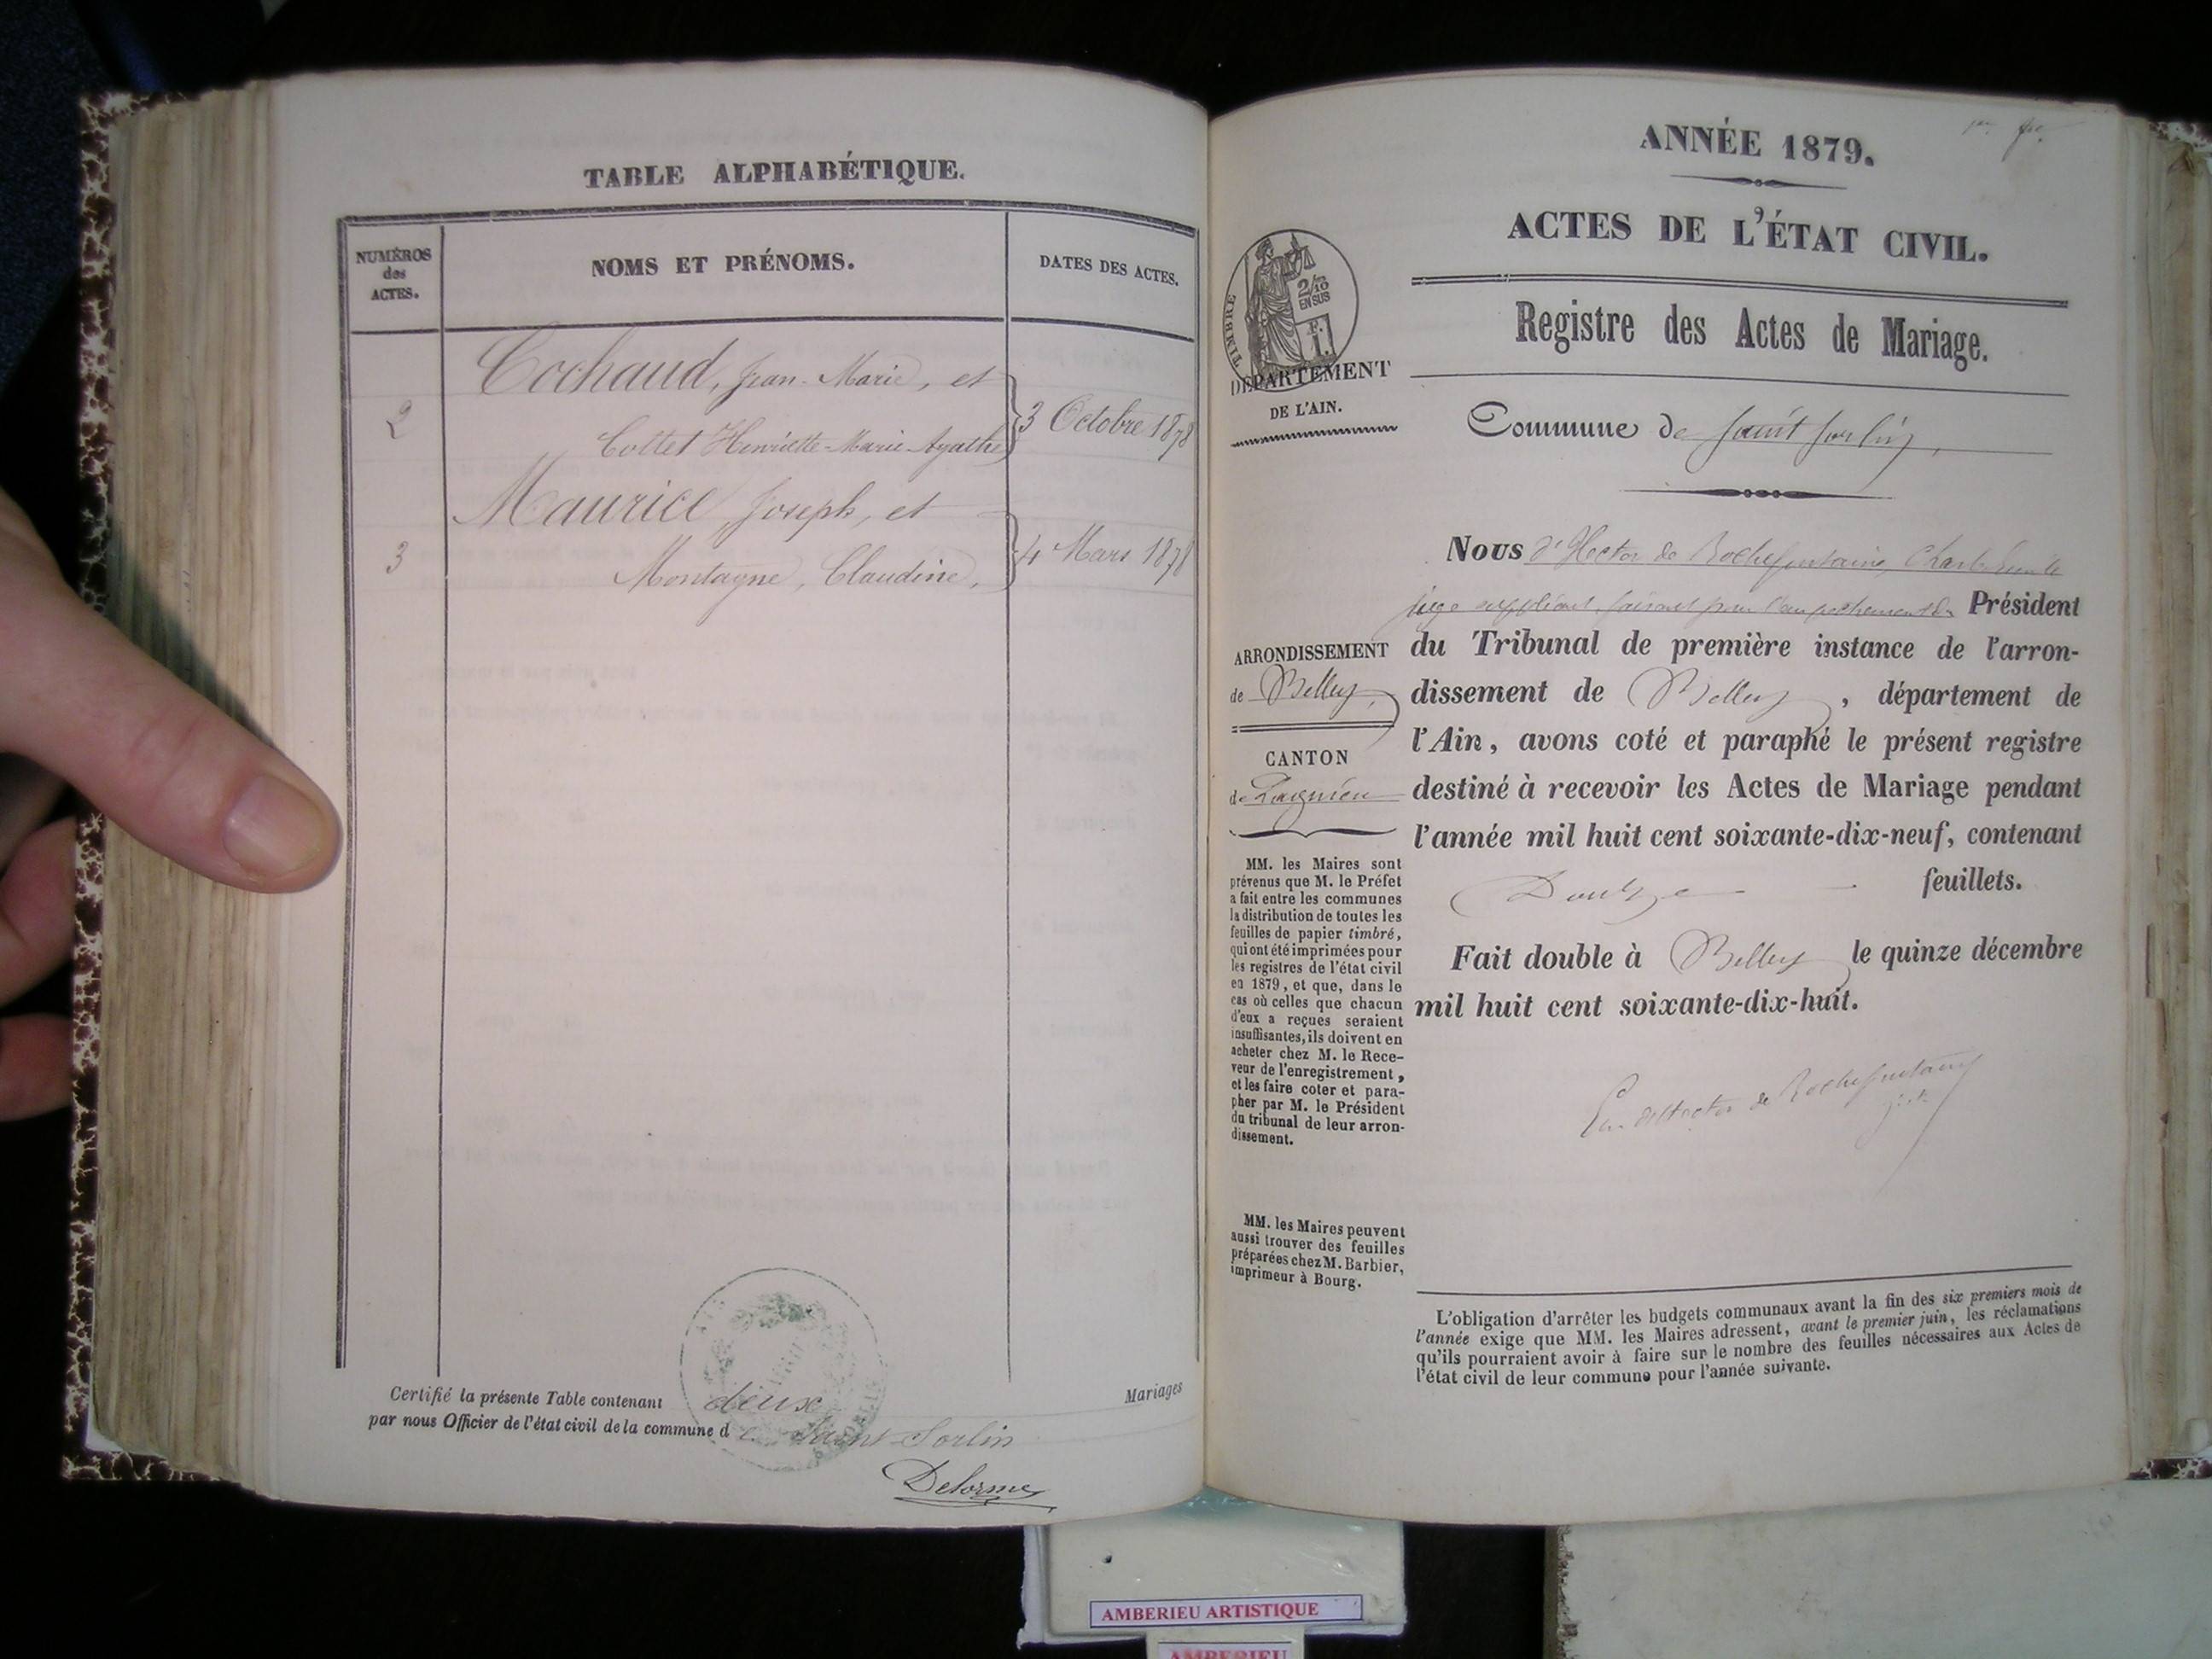 TABLE ALPHABÉTIQUE.
NUMÉROS
des
ACTES.
NOMS ET PRÉNOMS.
DATES DES ACTES.
Cochaud, Jean-Marie, et
2
3 Octobre 1878
Cottet Henriette-Marie-Agathe
Maurice Joseph, et
3
4 Mars 1878
Montagne, Claudine,
Certifié la présente Table contenant deux Mariages
par nous Officier de l'état civil de la commune de Saint-Sorlin
Delorme
ANNÉE 1879.
ACTES DE L'ÉTAT CIVIL.
Registre des Actes de Mariage.
TIMBRE
2/10
EN SUS
F.
1.
DÉPARTEMENT
DE L'AIN.
Commune de Saint Sorlin,
ARRONDISSEMENT
de Belley,
CANTON
de Lagnieu
MM. les Maires sont
prévenus que M. le Préfet
a fait entre les communes
la distribution de toutes les
feuilles de papier timbré,
qui ont été imprimées pour
les registres de l'état civil
en 1879, et que, dans le
cas où celles que chacun
d'eux a reçues seraient
insuffisantes, ils doivent en
acheter chez M. le Rece-
veur de l'enregistrement,
et les faire coter et para-
pher par M. le Président
du tribunal de leur arron-
dissement.
MM. les Maires peuvent
aussi trouver des feuilles
préparées chez M. Barbier,
imprimeur à Bourg.
Nous d'Hector de Rochefontaine,
juge suppléant, faisant pour l'empêchement du Président
du Tribunal de première instance de l'arron-
dissement de Belley, département de
l'Ain, avons coté et paraphé le présent registre
destiné à recevoir les Actes de Mariage pendant
l'année mil huit cent soixante-dix-neuf, contenant
Douze feuillets.
Fait double à Belley le quinze décembre
mil huit cent soixante-dix-huit.
d'Hector de Rochefontaine
L'obligation d'arrêter les budgets communaux avant la fin des six premiers mois de
l'année exige que MM. les Maires adressent, avant le premier juin, les réclamations
qu'ils pourraient avoir à faire sur le nombre des feuilles nécessaires aux Actes de
l'état civil de leur commune pour l'année suivante.
AMBERIEU ARTISTIQUE
AMBERIEU